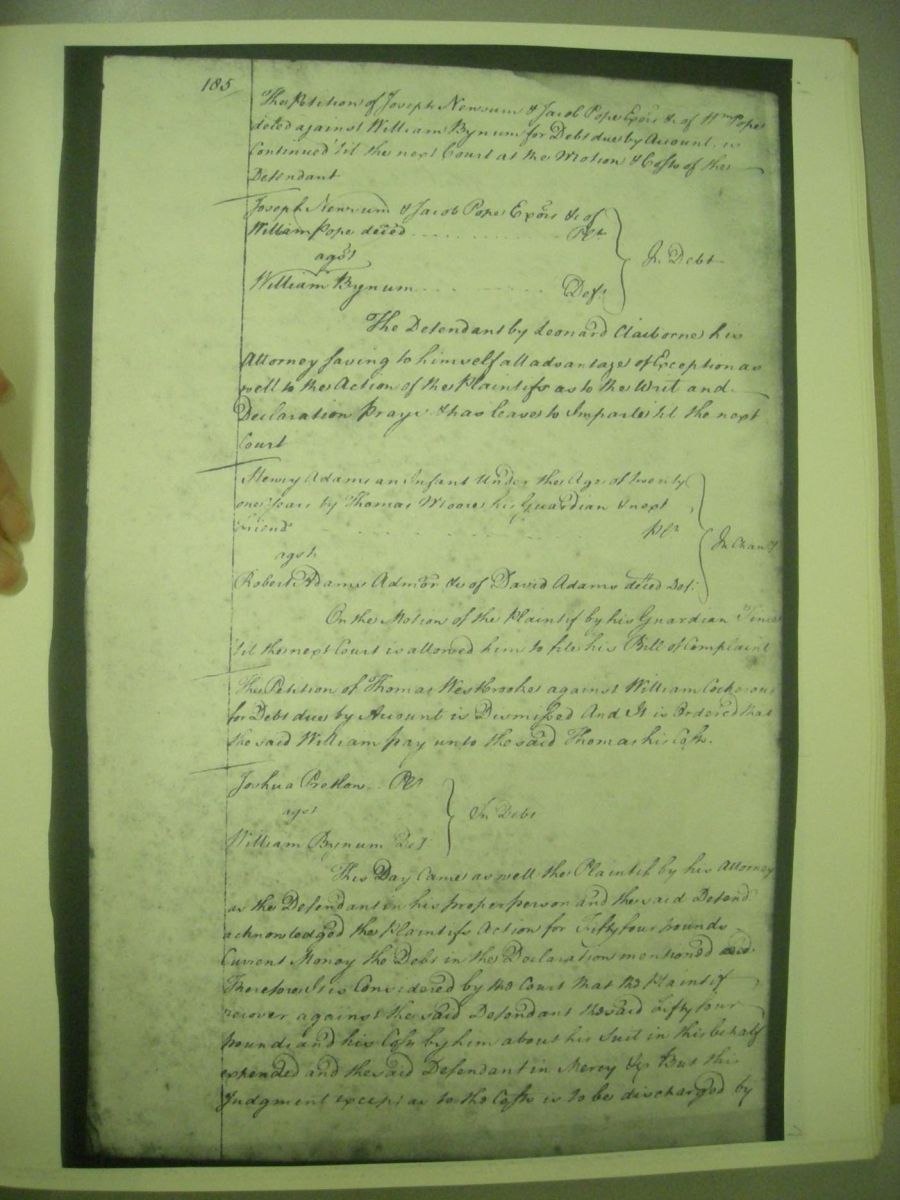 185
The Petition of Joseph Newsum & Jacob Pope Exors &c of Wm Pope
deced against William Bynum for Debt due by Account is
Continued 'til the next Court at the Motion & Costs of the
Defendant
Joseph Newsum & Jacob Pope Exors &c of
William Pope deced Plts
agst
William Bynum Deft
In Debt
The Defendant by Leonard Claiborne his
Attorney saving to himself all advantages of Exception as
well to the Action of the Plaintifs as to the Writ and
Declaration Prays & has leave to Imparle 'til the next
Court
Henry Adams an Infant Under the Age of twenty
one Years by Thomas Moore his Guardian & next
friend Plt
agst
Robert Adams Admor &c of David Adams deced Def.
In Chancy
On the Motion of the Plaintif by his Guardian Time
'til the next Court is allowed him to file his Bill of Complaint
The Petition of Thomas Westbrooke against William
for Debt due by Account is Dismissed And It is Ordered that
the said William pay unto the said Thomas his Costs.
Joshua Pretlow Plt
agst
William Bynum Def
In Debt
This Day Came as well the Plaintif by his Attorney
as the Defendant in his proper person and the said Defend.
acknowledged the Plaintifs Action for Fifty four pounds
Current Money the Debt in the Declaration mentioned
Therefore It is Considered by the Court that the Plaintif
recover against the said Defendant the said Fifty four
pounds and his Costs by him about his Suit in this behalf
expended and the said Defendant in Mercy &c But this
Judgment except as to the Costs is to be discharged by